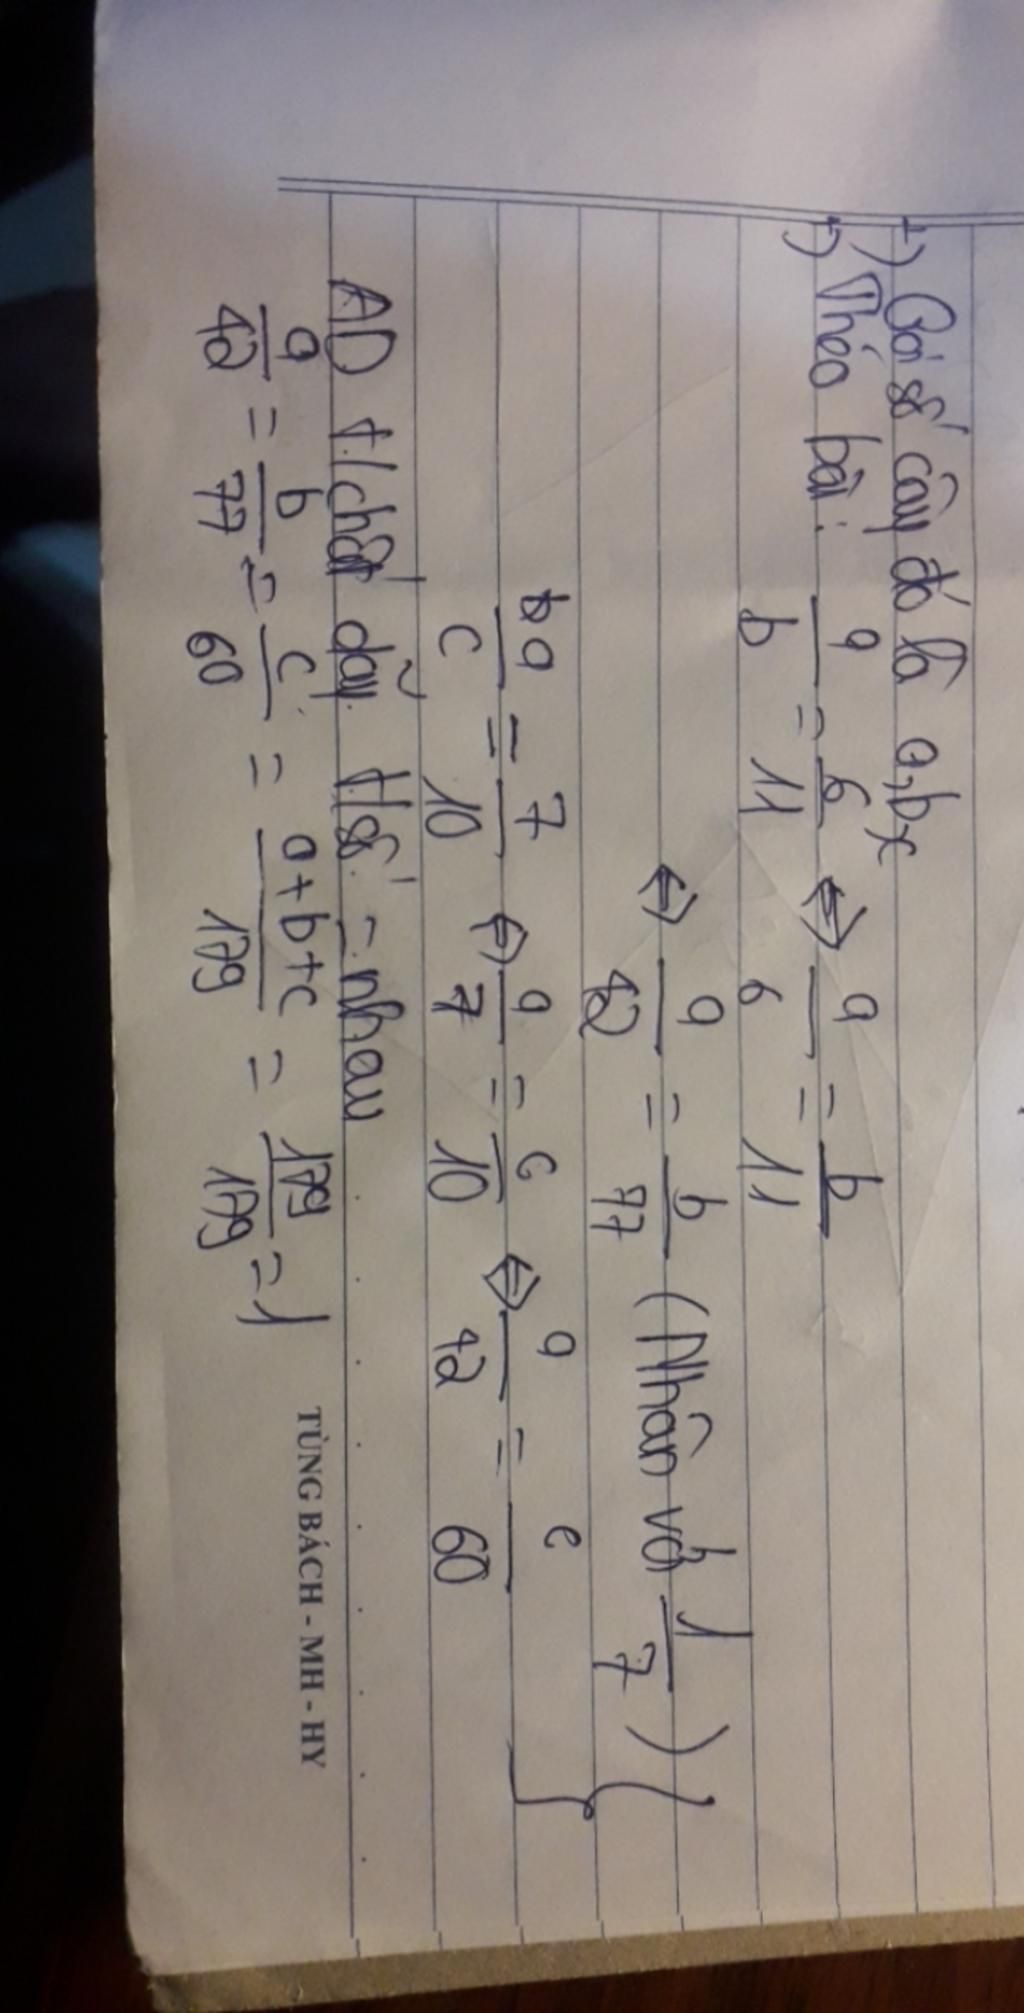 +) Gọi số cây đó là a,b,c
+) Theo bài: a/b = 6/11 ⇔ a/6 = b/11
⇔ a/42 = b/77 (Nhân với 1/7)
a/c = 7/10 ⇔ a/7 = c/10 ⇔ a/42 = c/60
AD t/chất dãy t/số = nhau
a/42 = b/77 = c/60 = a+b+c/179 = 179/179 = 1
TÙNG BÁCH - MH - HY